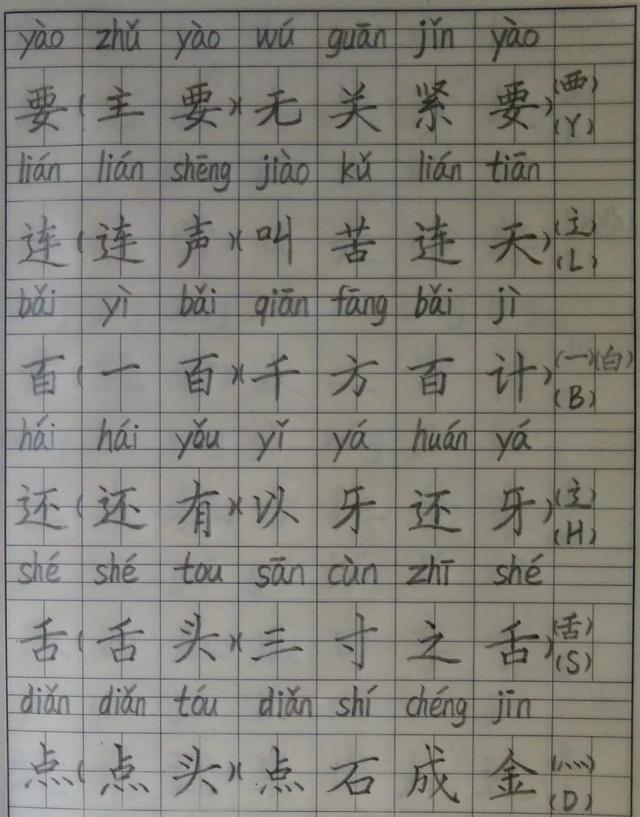 yào zhǔ yào wú guān jǐn yào
要(主要)(无关紧要)(覀)(Y)
lián lián shēng jiào kǔ lián tiān
连(连声)(叫苦连天)(辶)(L)
bǎi yì bǎi qiān fāng bǎi jì
百(一百)(千方百计)(一)(白)(B)
hái hái yǒu yǐ yá huán yá
还(还有)(以牙还牙)(辶)(H)
shé shé tou sān cùn zhī shé
舌(舌头)(三寸之舌)(舌)(S)
diǎn diǎn tóu diǎn shí chéng jīn
点(点头)(点石成金)(灬)(D)